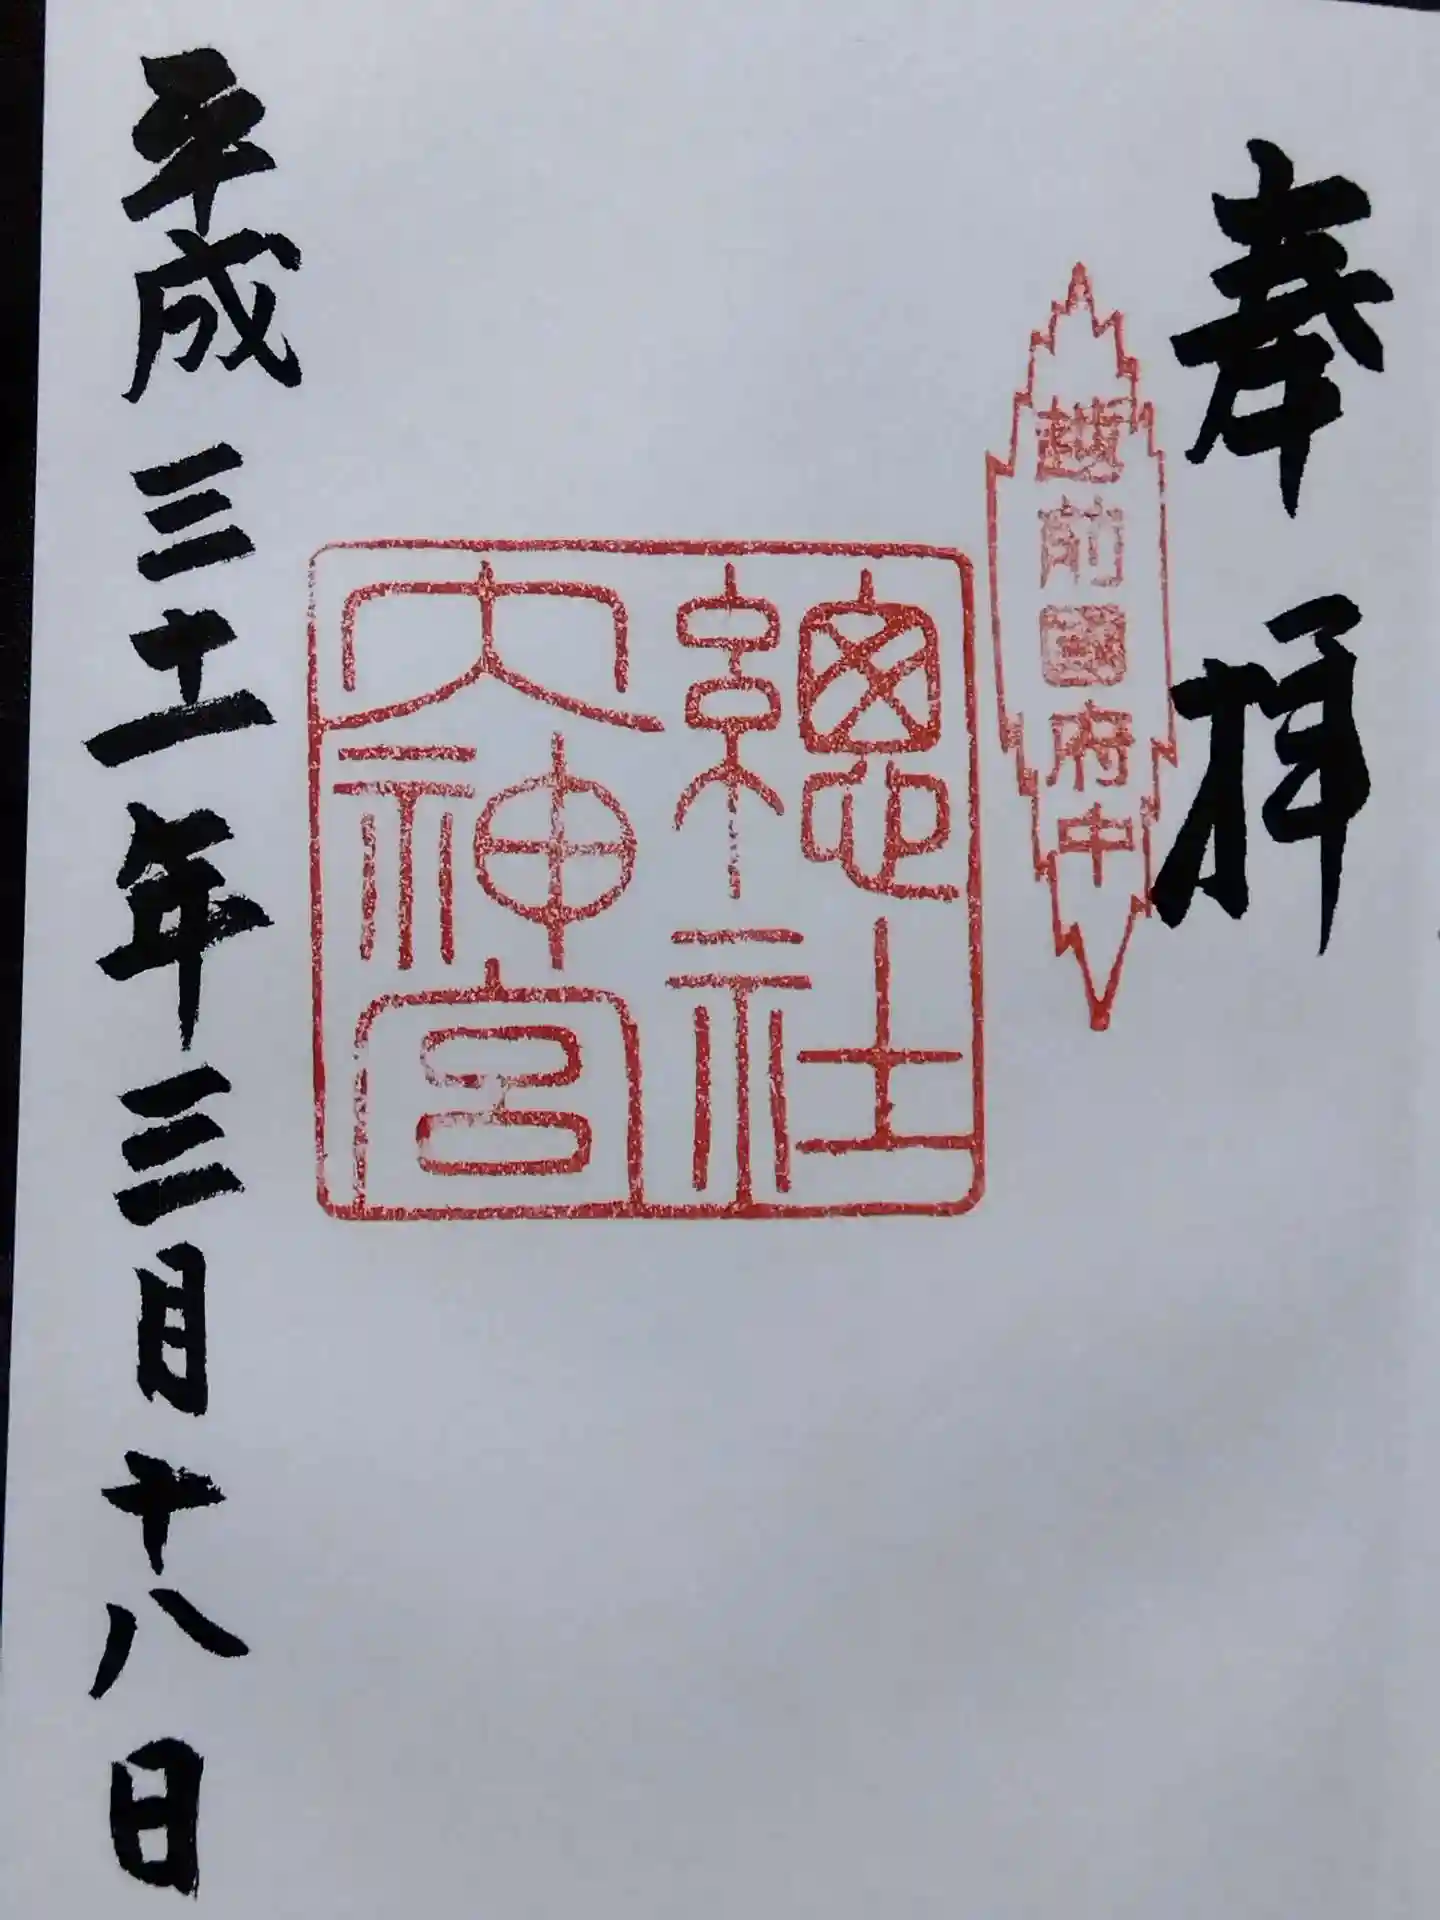 奉拝
越前國府中
總社
大神宮
平成三十一年三月十八日